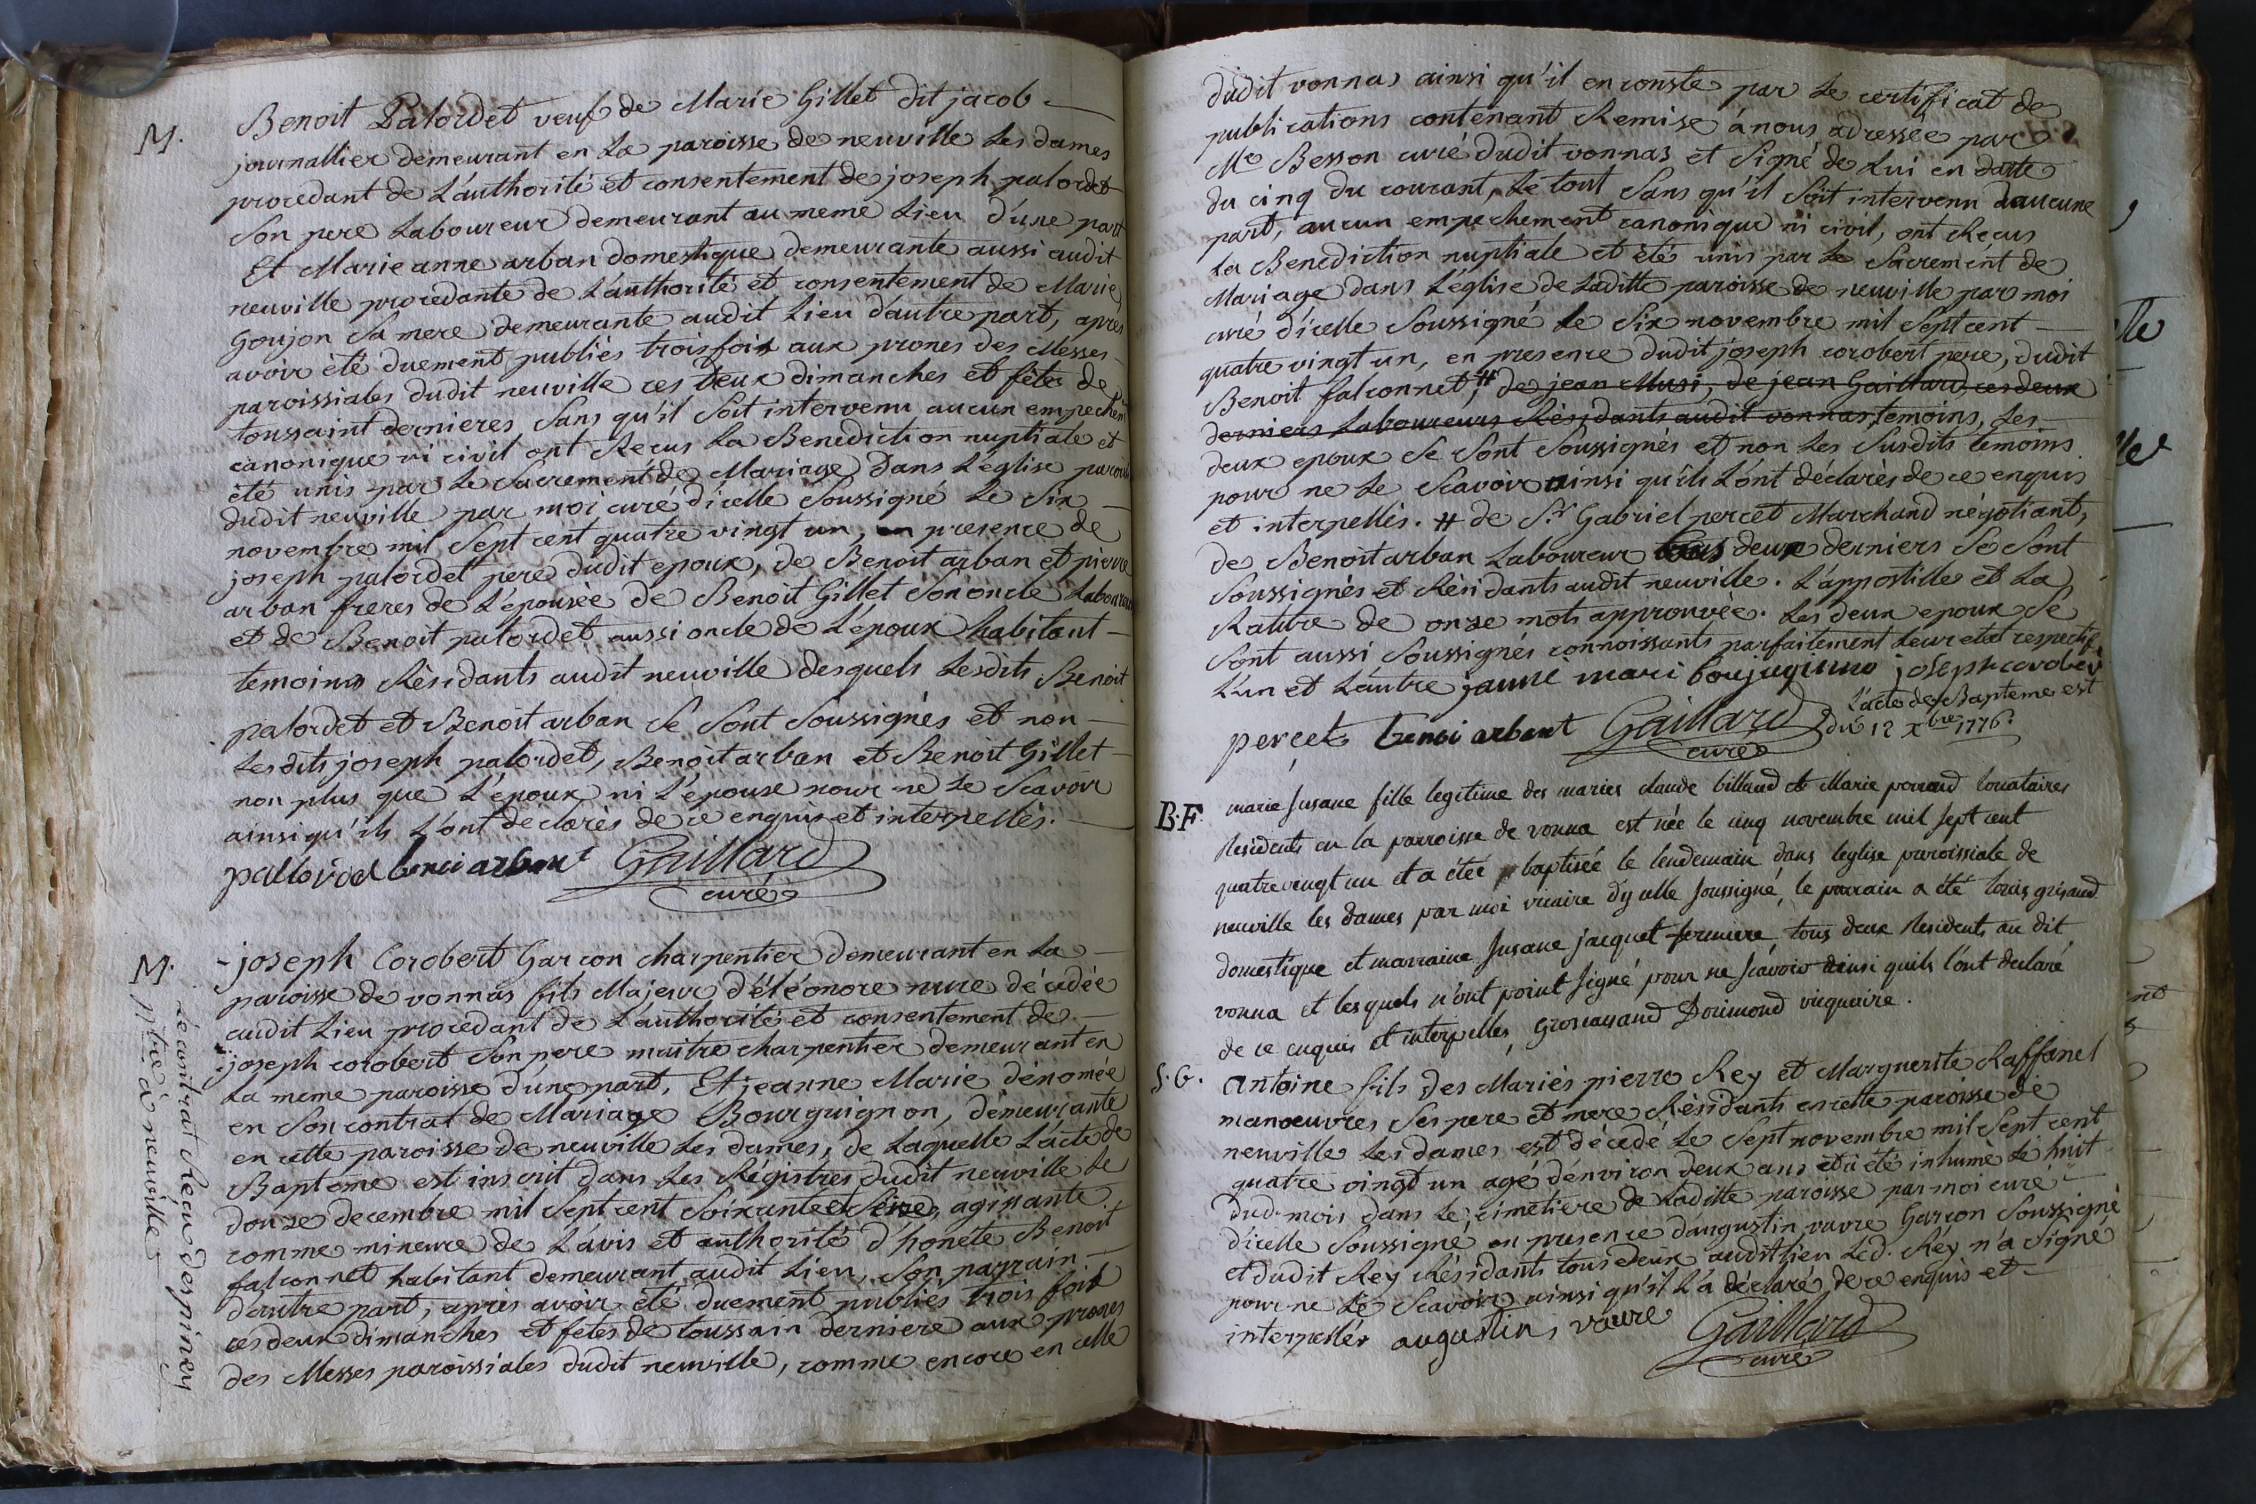 M.
Benoit Palordet veuf de Marie Gillet dit jacob
journallier demeurant en La paroisse de neuville Les dames
procedant de L'authorité et consentement de joseph palordet
Son pere Laboureur demeurant au meme Lieu d'une part
Et Marie anne arban domestique demeurante aussi audit
neuville procedante de L'authorité et consentement de Marie
Goujon Sa mere demeurante audit Lieu d'autre part, après
avoir été duement publiés trois fois aux prones des Messes
paroissiales dudit neuville ces deux dimanches et fêtes de
toussaint dernieres, Sans qu'il Soit intervenu aucun empechem
canonique ni civil ont Recus La Benediction nuptiale et
été unis par Le Sacrement de Mariage dans L'église paroiss
dudit neuville par moi curé d'icelle Soussigné Le Six
novembre mil Sept cent quatre vingt un, en presence de
joseph palordet pere dudit epoux, de Benoit arban et pierre
arban freres de L'épousée de Benoit Gillet Son oncle Laboureur
et de Benoit palordet aussi oncle de L'époux habitant
temoins Résidants audit neuville desquels Lesdits Benoit
palordet et Benoit arban Se Sont Soussignés et non
Lesdits joseph palordet, Benoit arban et Benoit Gillet
non plus que L'époux ni L'épouse pour ne Le Scavoir
ainsi qu'ils L'ont déclarés de ce enquis et interpellés.
pallordet benoi arban Gaillard
curé
M.
Le contrat Reçu despiney
ptre à neuville
joseph Corobert Garcon charpentier demeurant en La
paroisse de vonnas fils Majeur d'éléonore nure décédée
audit Lieu procedant de L'authorité et consentement de
joseph corobert Son pere maitre charpentier demeurant en
La meme paroisse d'une part, Et jeanne Marie dénomée
en Son contrat de Mariage Bourguignon, demeurante
en cette paroisse de neuville Les dames, de Laquelle L'acte de
Bapteme est inscrit dans Les Régistres dudit neuville Le
douze decembre mil Sept cent Soixante et Seize, agissante
comme mineure de L'avis et authorité d'honete Benoit
falconnet habitant demeurant audit Lieu, Son parrain
d'autre part, après avoir été duement publiés trois fois
ces deux dimanches et fêtes de toussain derniere aux prones
des Messes paroissiales dudit neuville, comme encore en celle
dudit vonnas ainsi qu'il en conste par Le certificat de
publications contenant Remise à nous adressée par
Me Besson curé dudit vonnas et Signé de Lui en datte
du cinq du courant, Le tout Sans qu'il Soit intervenu d'aucune
part, aucun empechement canonique ni civil, ont Recus
La Benediction nuptiale et été unis par Le Sacrement de
Mariage dans L'église de Laditte paroisse de neuville par moi
curé d'icelle Soussigné Le Six novembre mil Sept cent
quatre vingt un, en presence dudit joseph corobert pere, dudit
Benoit falconnet, # de jean Musi, de jean Gaillard ces deux
derniers Laboureurs Résidants audit vonnas, temoins, Les
deux epoux Se Sont Soussignés et non Les Susdits temoins
pour ne Le Scavoir ainsi qu'ils L'ont déclarés de ce enquis
et interpellés. # de Sr. Gabriel percet Marchand négotiant,
de Benoit arban Laboureur deux derniers Se Sont
Soussignés et Résidants audit neuville. L'appostille et La
Rature de onze mots approuvée. Les deux epoux Se
Sont aussi Soussignés connoissants parfaitement leur etat respectif
L'un et L'autre janne mari joseph corober
percet benoi arbant Gaillard
curé
L'acte de Bapteme est
du 12 Xbre 1776.
B.F.
marie Susane fille legitime des mariés claude billaud et Marie perraud locataires
Residents en la parroisse de vonna est née le cinq novembre mil sept cent
quatrevingt un et a étée baptisée le lendemain dans leglise paroissiale de
neuville les dames par moi vicaire d'y celle soussigné, le parrain a été
domestique et marraine Susane jacquet fermiere, tous deux Residents au dit
vonna et lesquels n'ont point signé pour ne scavoir ainsi quils l'ont declaré
de ce enquis et interpellés, vicquaire.
S.G.
antoine fils des Mariés pierre Rey et Marguerite Raffanel
manoeuvres Ses pere et mere Résidants en cette paroisse de
neuville Les dames est décédé Le Sept novembre mil Sept cent
quatre vingt un agé d'environ deux ans et à été inhumé Le huit
dud. mois dans Le cimetiere de Laditte paroisse par moi curé
d'icelle Soussigné en presence d'augustin vavre Garçon Soussigné
et dudit Rey Résidants tous deux audit Lieu Led. Rey n'a Signé
pour ne Le Scavoir ainsi qu'il L'a déclaré de ce enquis et
interpellér augustin, vavre Gaillard
curé